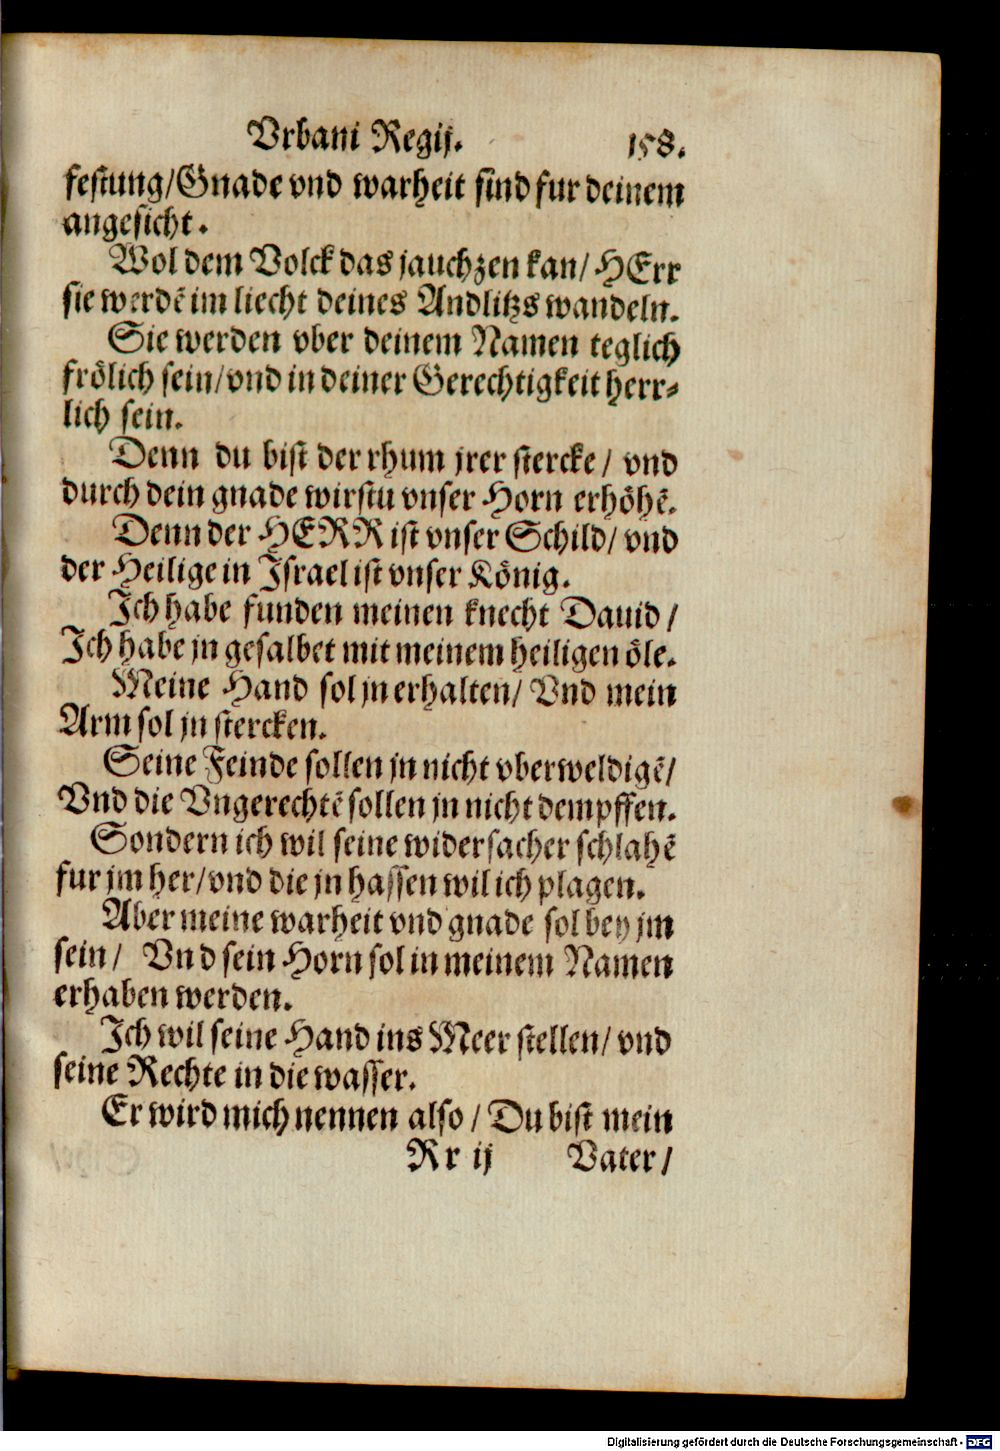 Vrbani Regij. 158.
festung/Gnade vnd warheit sind fur deinem
angesicht.
Wol dem Volck das jauchzen kan/ HErr
sie werdẽ im liecht deines Andlitzs wandeln.
Sie werden vber deinem Namen teglich
frölich sein/vnd in deiner Gerechtigkeit herr⸗
lich sein.
Denn du bist der rhum jrer stercke/ vnd
durch dein gnade wirstu vnser Horn erhöhẽ.
Denn der HERR ist vnser Schild/ vnd
der Heilige in Israel ist vnser König.
Ich habe funden meinen knecht Dauid/
Ich habe jn gesalbet mit meinem heiligen öle.
Meine Hand sol jn erhalten/ Vnd mein
Arm sol jn stercken.
Seine Feinde sollen jn nicht vberweldigẽ/
Vnd die Vngerechtẽ sollen jn nicht dempffen.
Sondern ich wil seine widersacher schlahẽ
fur jm her/vnd die jn hassen wil ich plagen.
Aber meine warheit vnd gnade sol bey jm
sein/ Vnd sein Horn sol in meinem Namen
erhaben werden.
Ich wil seine Hand ins Meer stellen/ vnd
seine Rechte in die wasser.
Er wird mich nennen also/ Du bist mein
Rr ij Vater/
Digitalisierung gefördert durch die Deutsche Forschungsgemeinschaft - DFG